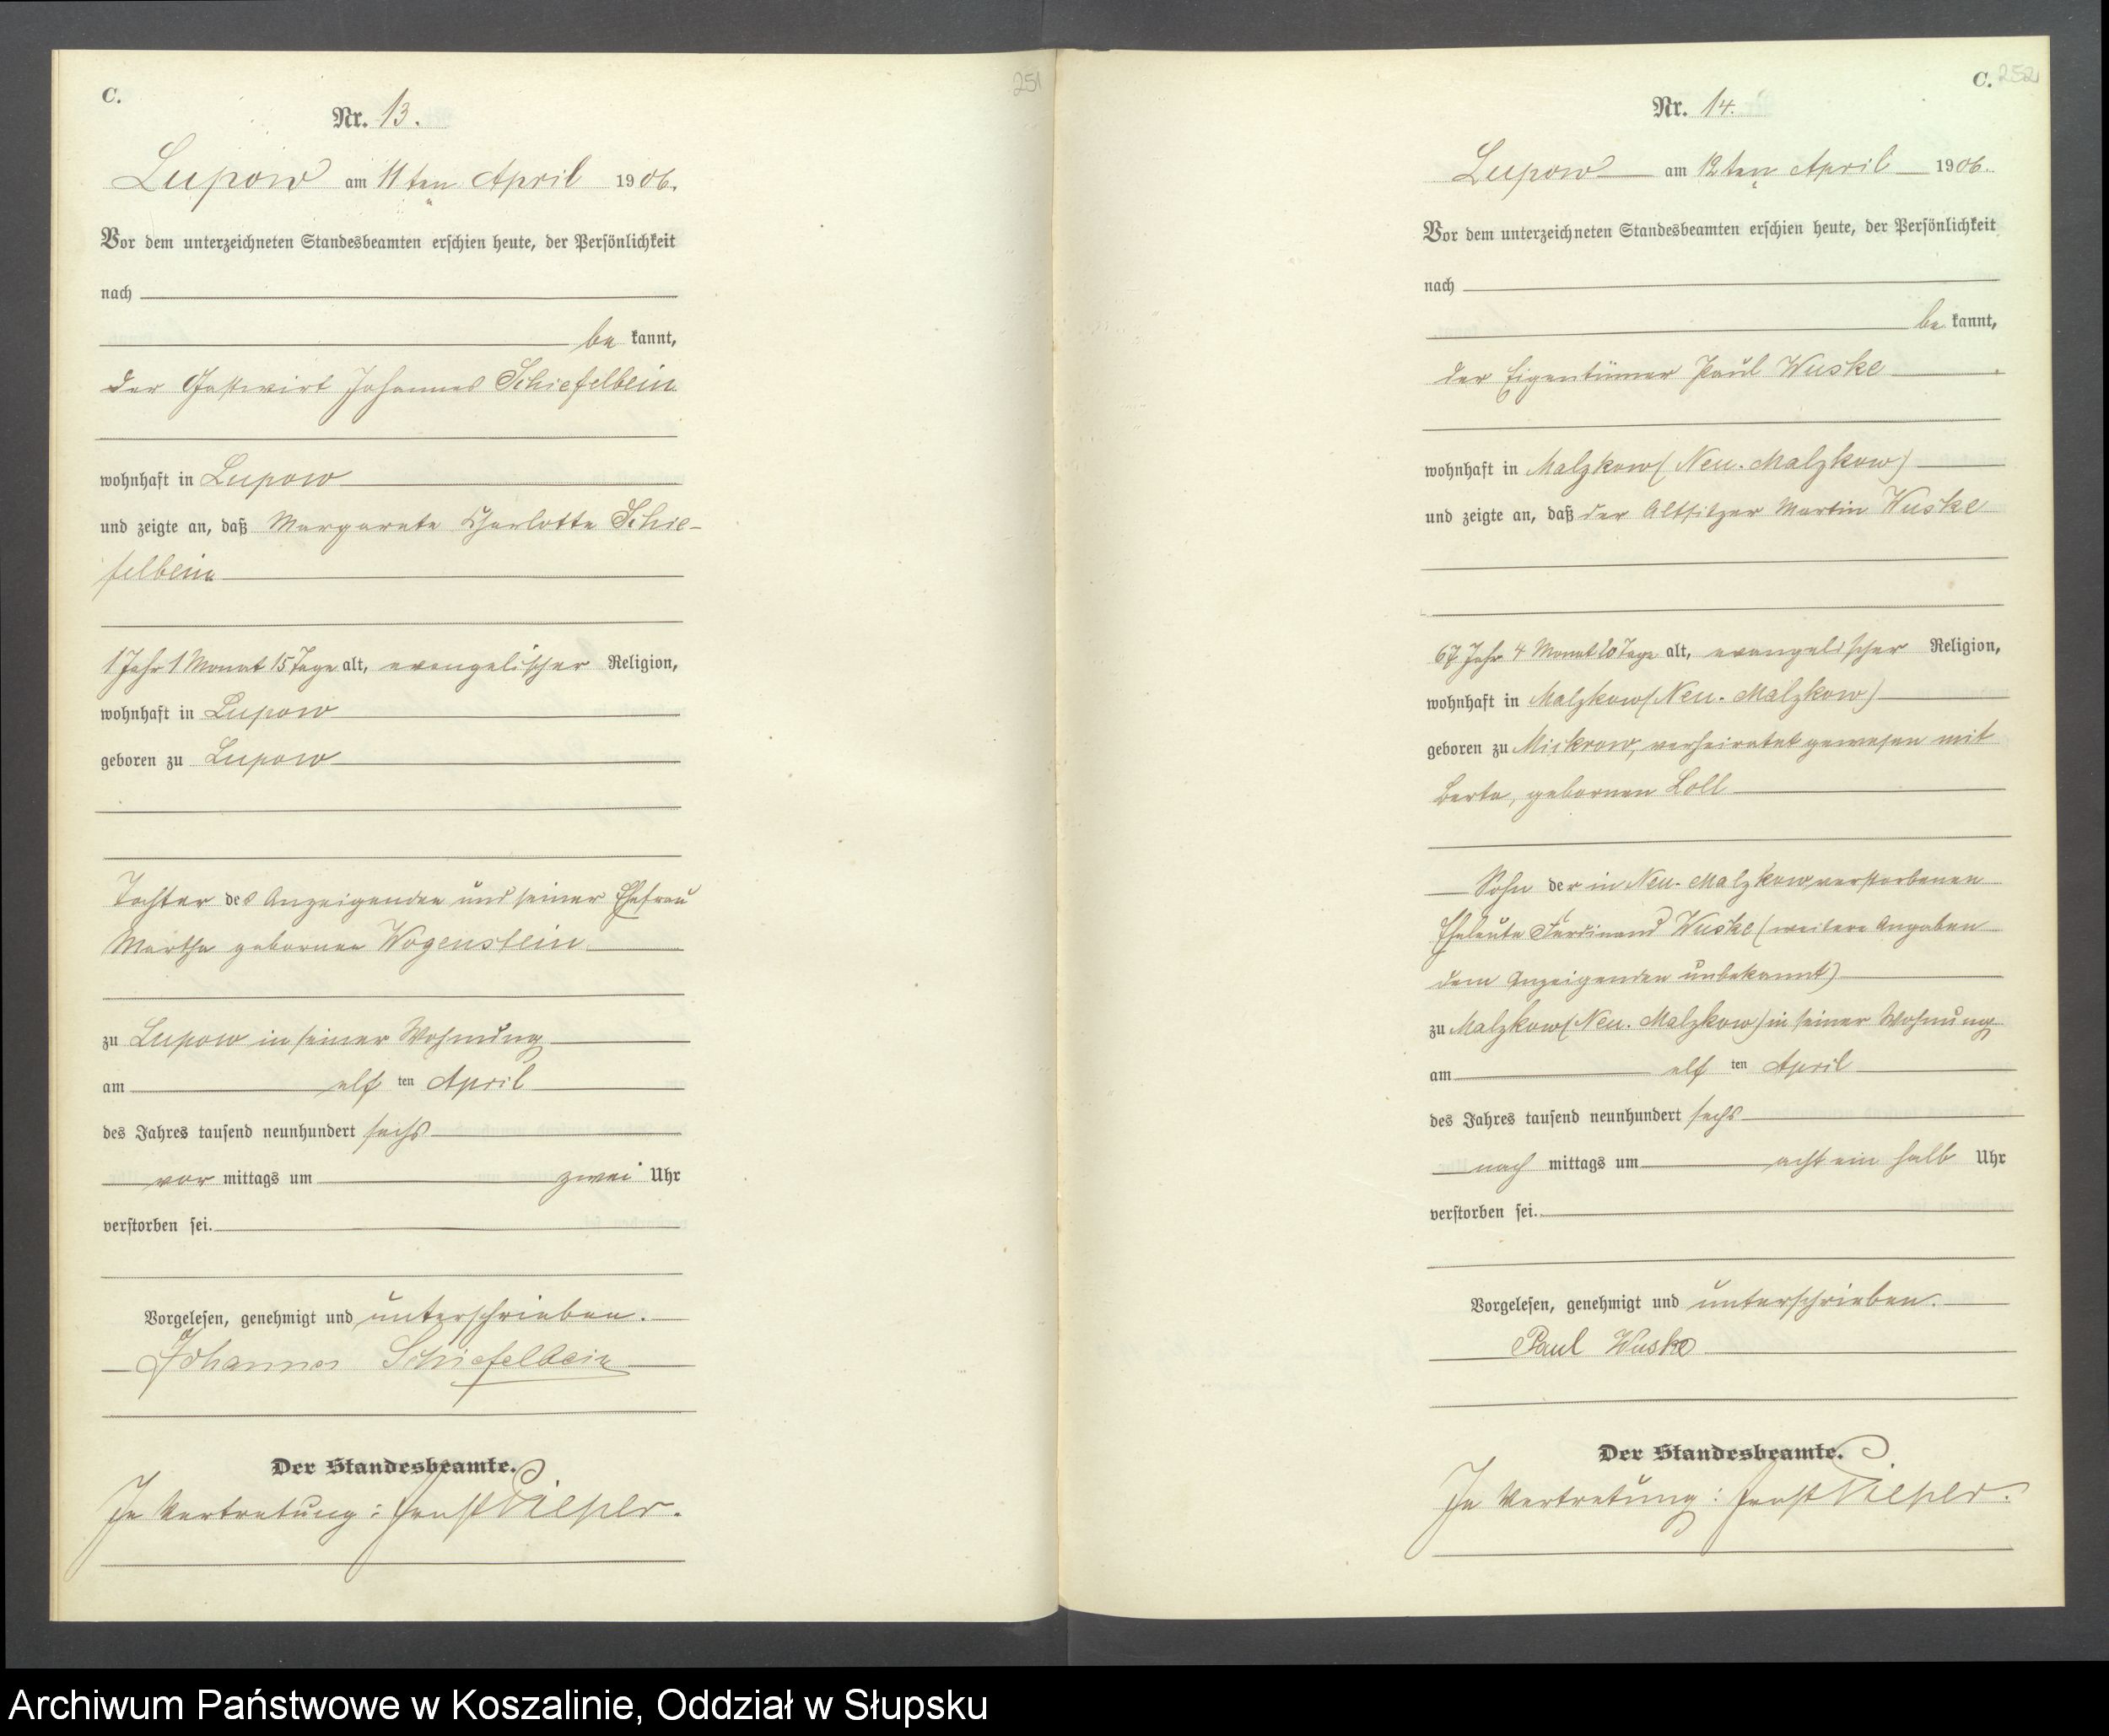 C.
251
Nr. 13.
Lupow am 11ten April 1906.
Vor dem unterzeichneten Standesbeamten erschien heute, der Persönlichkeit
nach
be kannt,
der Gastwirt Johannes Schiefelbein
wohnhaft in Lupow
und zeigte an, daß Margarete Charlotte Schie-
felbein
1 Jahr 1 Monat 15 Tage alt, evangelischer Religion,
wohnhaft in Lupow
geboren zu Lupow
Tochter des Anzeigenden und seiner Ehefrau
Martha gebornen Wogenstein
zu Lupow in seiner Wohnung
am elf ten April
des Jahres tausend neunhundert sechs
vor mittags um zwei Uhr
verstorben sei.
Vorgelesen, genehmigt und unterschrieben.
Johannes Schiefelbein
Der Standesbeamte.
In Vertretung: Ernst Pieper.
C. 252
Nr. 14.
Lupow am 12ten April 1906.
Vor dem unterzeichneten Standesbeamten erschien heute, der Persönlichkeit
nach
be kannt,
der Eigentümer Paul Wuske
wohnhaft in Malzkow (Neu-Malzkow)
und zeigte an, daß der Altsitzer Martin Wuske
67 Jahr 4 Monat 20 Tage alt, evangelischer Religion,
wohnhaft in Malzkow (Neu-Malzkow)
geboren zu Mickrow, verheiratet gewesen mit
Berta, gebornen Loll
Sohn der in Neu-Malzkow verstorbenen
Eheleute Ferdinand Wuske (weitere Angaben
dem Anzeigenden unbekannt)
zu Malzkow (Neu-Malzkow) in seiner Wohnung
am elf ten April
des Jahres tausend neunhundert sechs
nach mittags um acht ein halb Uhr
verstorben sei.
Vorgelesen, genehmigt und unterschrieben.
Paul Wuske
Der Standesbeamte.
In Vertretung: Ernst Pieper.
Archiwum Państwowe w Koszalinie, Oddział w Słupsku